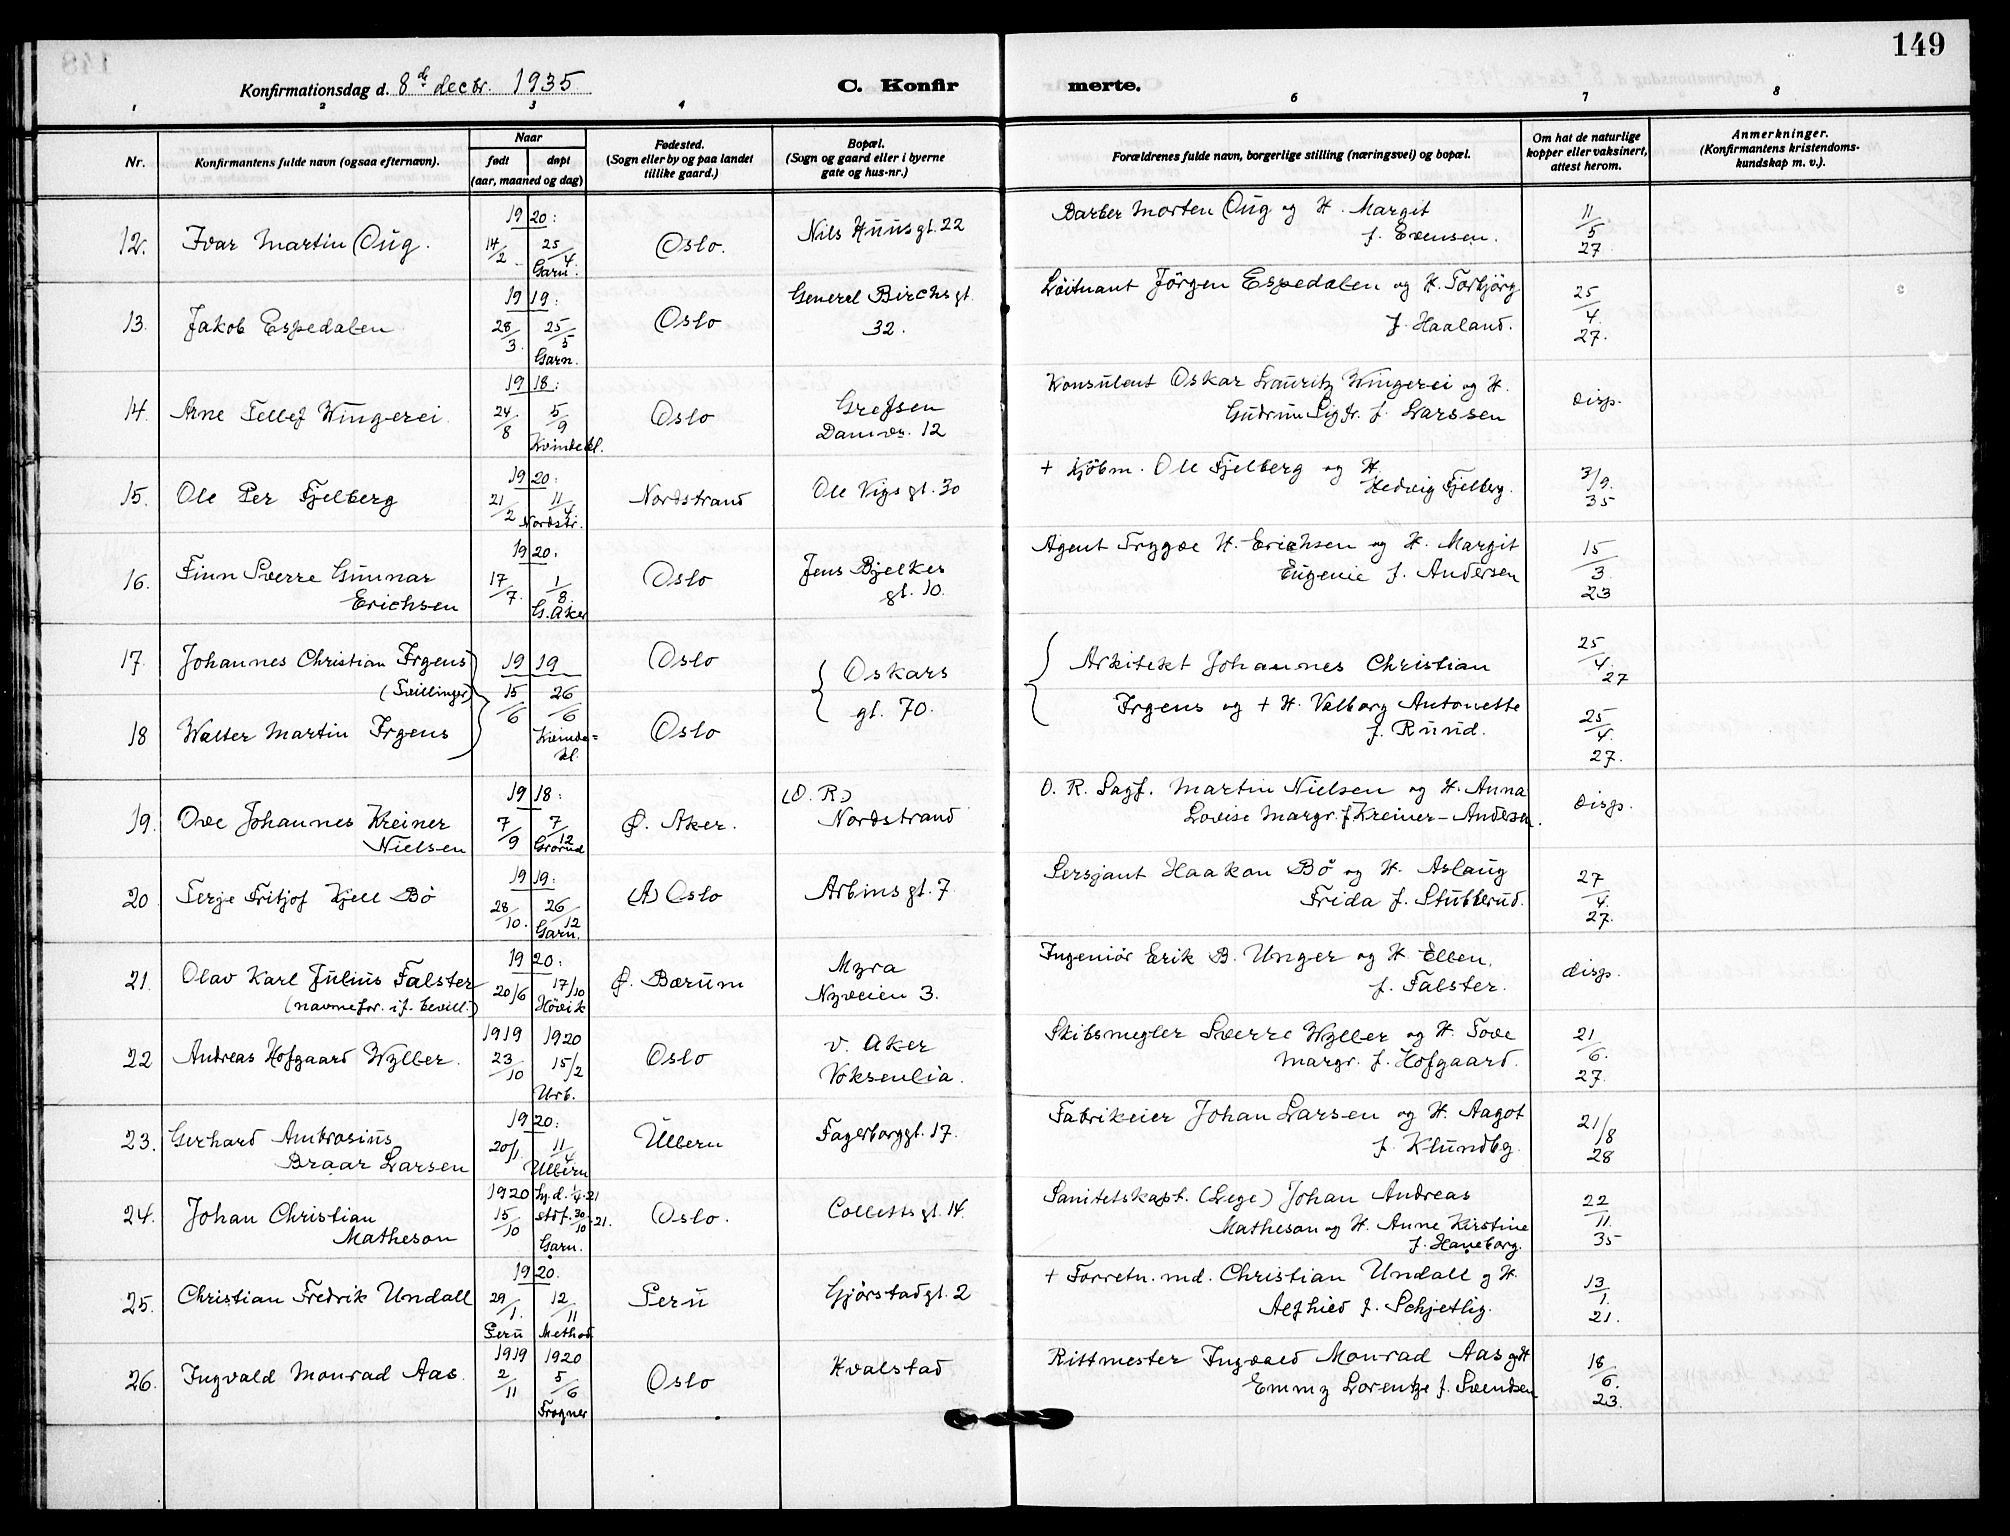 149
Konfirmationsdag d. 8de decbr. 1935.
C. Konfir
merte.
1 2 3 4 6 7 8
Nr.
Konfirmantens fulde navn (ogsaa efternavn).
Naar
født
døpt
(aar, maaned og dag)
Fødested.
(Sogn eller by og paa landet
tillike gaard.)
Bopæl.
(Sogn og gaard eller i byerne
gate og hus-nr.)
Forældrenes fulde navn, borgerlige stilling (næringsvei) og bopæl.
Om hat de naturlige
kopper eller vaksinert,
attest herom.
Anmerkninger.
(Konfirmantens kristendoms-
kundskap m. v.).
12. Ivar Martin Oug. 1920: 14/2 25/4 Garn. Oslo. Nils Huusgt. 22 Barber Morten Oug og H. Margit
f. Evensen. 11/5 27.
13. Jakob Espedalen 1919: 28/3. 25/5 Garn. Oslo General Birchs gt.
32. Løitnant Jörgen Espedalen og H. Torbjörg
f. Haaland. 25/4. 27.
14. Arne Tellef Wingerei. 1918: 24/8 5/9 Kvindekl. Oslo Grefsen
Damvs. 12 Konsulent Oskar Lauritz Wingerei og H.
Gudrun Sigfr. f. Larssen disp.
15. Ole Per Fjelberg 1920: 21/2 11/4 Nordstr. Nordstrand Ole Vigs gt. 30 + Kjöbm. Ole Fjelberg og H.
Hedvig Fjelberg. 3/9. 35
16. Finn Sverre Gunnar
Erichsen 1920: 17/7. 1/8. G. Aker Oslo Jens Bjelkes
gt. 10. Agent Trygve H. Erichsen og H. Margit
Eugenie f. Andersen 15/3. 23
17. Johannes Christian Irgens
(Tvillinger) 1919 15/6 26/6 Kvinde=
kl. Oslo Oskars
gt. 70. Arkitekt Johannes Christian
Irgens og + H. Valborg Antonette
f. Ruud. 25/4. 27
18 Walter Martin Irgens Oslo 25/4. 27.
19. Ove Johannes Kreiner
Nielsen 1918: 7/9 7/12 Grorud Ø. Aker. (O. R.)
Nordstrand O. R. Sagf. Martin Nielsen og H. Anna
Lovise Margr. f Kreiner-Andersen. disp.
20. Terje Fritjof Kjell Bö 1919: 28/10. 26/12 Garn. (A) Oslo Arbins gt. 7. Sersjant Haakon Bö og H. Aslaug
Frida f. Stubberud. 27/4. 27.
21. Olav Karl Julius Falster
(navnefor. if. bevill.) 1920: 20/6 17/10 Hövik Ø. Bærum Myra
Nyveien 3. Ingeniör Erik B. Unger og H Ellen,
f. Falster. disp.
22 Andreas Hofgaard Wyller. 1919 1920 23/10 15/2 Urb. Oslo V. Aker
Voksenlia. Skibsmegler Sverre Wyller og H. Tove
Margr. f. Hofgaard. 21/6. 27.
23. Gerhard Ambrosius
Braar Larsen 1920: 20/1. 11/4 Ullern Ullern Fagerborggt. 17. Fabrikeier Johan Larsen og H. Aagot
f. Klundbg. 21/8 28
24. Johan Christian
Matheson 1920 15/10 Hj.d. 1/4.21 stdf. 30/10.21. Garn. Oslo. Colletts gt. 14. Sanitetskapt. (Lege) Johan Andreas
Matheson og H. Anne Kirstine
f. Haneborg. 22/11. 35
25. Christian Fredrik Undall 1920. 29/1. Peru 12/11 Method. Peru Gjörstadgt. 2 + Forretn. md. Christian Undall og H.
Alfhild f. Schjetlig. 13/1. 21.
26. Ingvald Monrad Aas. 1919 1920 2/11 5/6 Frogner Oslo Hvalstad Rittmester Ingvald Monrad Aas og H
Emmy Lorentze f. Svendsen 18/6. 23.